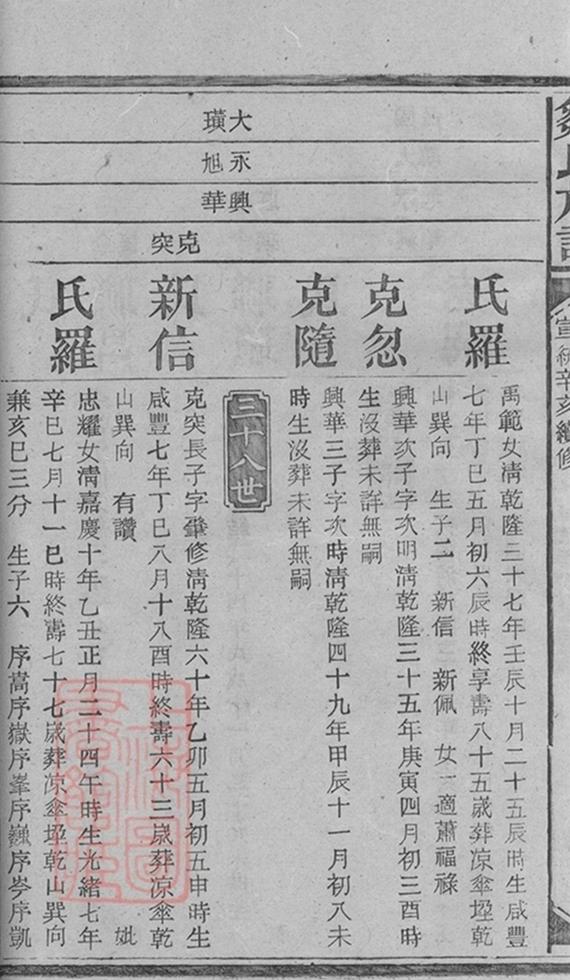 大璜
永旭
興華
克突
氏羅
禹範女淸乾隆三十七年壬辰十月二十五辰時生咸豐
七年丁巳五月初六辰時終享壽八十五歲葬凉傘㘭乾
山巽向 生子二 新信 新佩 女一適蕭福祿
克忽
興華次子字次明淸乾隆三十五年庚寅四月初三酉時
生沒葬未詳無嗣
克隨
興華三子字次時淸乾隆四十九年甲辰十一月初八未
時生沒葬未詳無嗣
三十八世
新信
克突長子字肇修淸乾隆六十年乙卯五月初五申時生
咸豐七年丁巳八月十八酉時終壽六十三歲葬凉傘乾
山巽向 有讚 妣
氏羅
忠耀女淸嘉慶十年乙丑正月二十四午時生光緒七年
辛巳七月十一巳時終壽七十七歲葬凉傘㘭乾山巽向
兼亥巳三分 生子六 序嵩序嶽序峯序巍序岑序凱